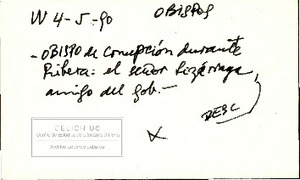 W 4-5-90 OBISPOS
- OBISPO de Concepción durante
Ribera: el señor Lizárraga,
amigo del gob. -
DESC
X
CELICH UC